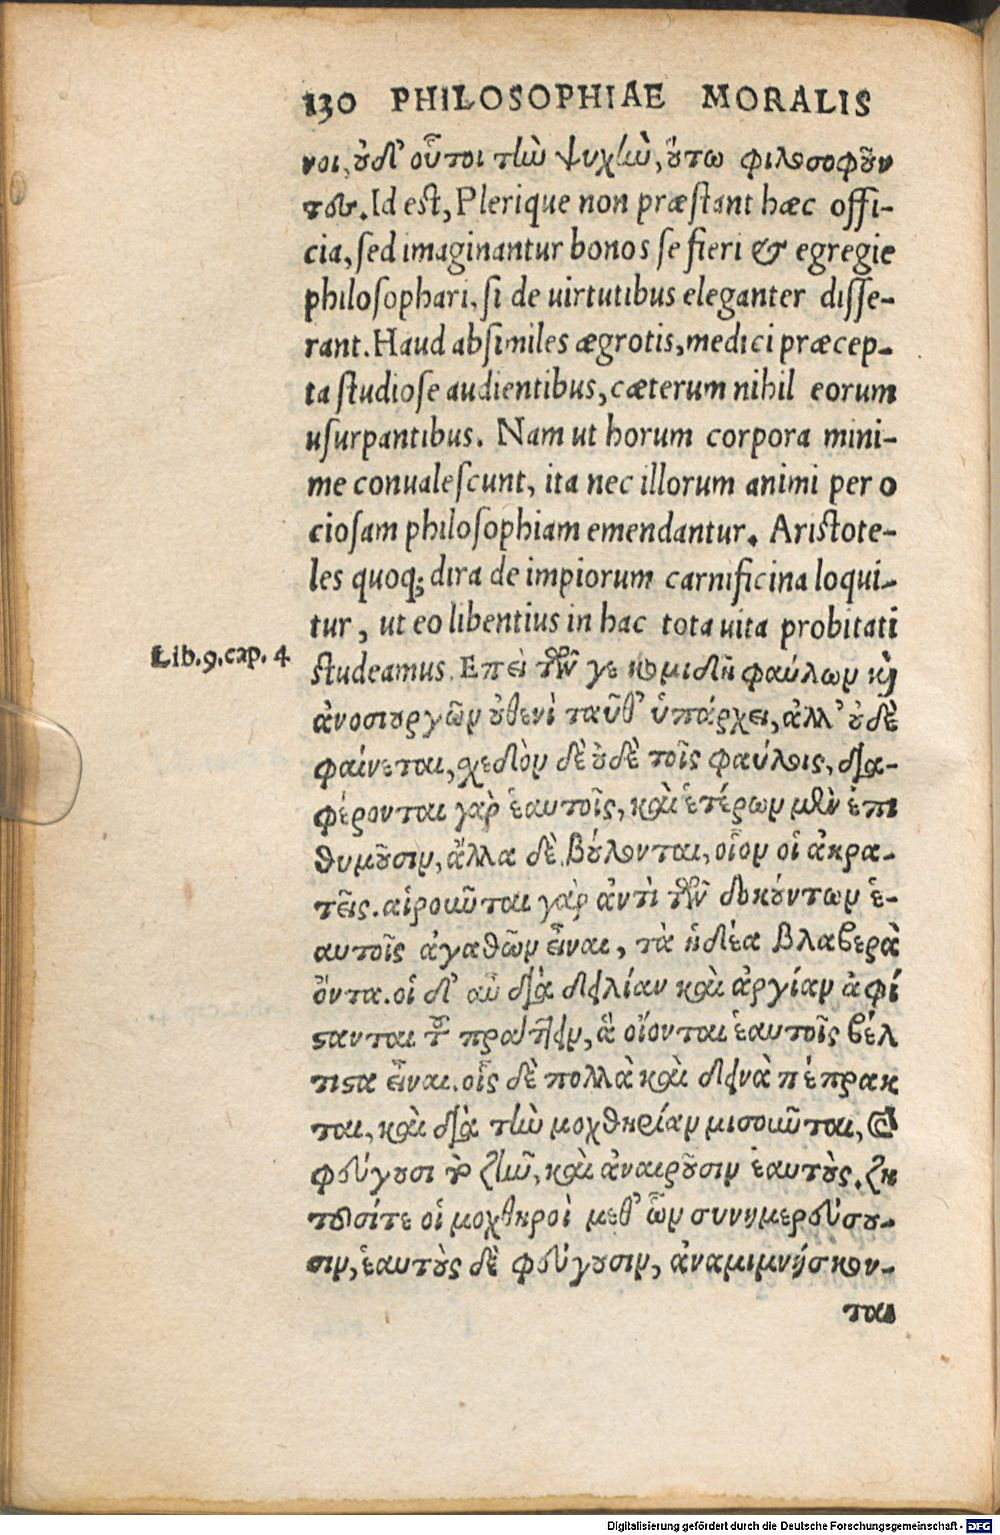 130 PHILOSOPHIAE MORALIS
νοι, ȣδ' οὗτοι τὴν ψυχὴν, ȣ̔́τω φιλοσοφȣ̃ν
τες. Id est, Plerique non præstant hæc offi-
cia, sed imaginantur bonos se fieri & egregie
philosophari, si de uirtutibus eleganter disse-
rant. Haud absimiles ægrotis, medici præcep-
ta studiose audientibus, cæterum nihil eorum
usurpantibus. Nam ut horum corpora mini-
me conualescunt, ita nec illorum animi per o
ciosam philosophiam emendantur. Aristote-
les quoq; dira de impiorum carnificina loqui-
tur, ut eo libentius in hac tota uita probitati
Lib.9.cap. 4
studeamus. Επεὶ τῶν γε κομιδῆ φαύλων κ̀
ἀνοσιȣργῶν ȣ̓θενὶ ταῦθ' ὑπάρχει, ἀλλ' ȣ̓δὲ
φαίνεται, χεδὸν δὲ ȣ̓δὲ τοῖς φαύλοις, δια-
φέρονται γὰρ ἑαυτοῖς, καὶ ἑτέρων μὲν ἐπι
θυμȣ̃σιν, ἄλλα δὲ βȣ́λονται, οἷον οἱ ἀκρα-
τεῖς. αἱροῦνται γὰρ ἀντὶ τῶν δοκȣ́ντων ἑ-
αυτοῖς ἀγαθῶν εἶναι, τὰ ἡδέα βλαβερὰ
ὄντα. οἱ δ' αὖ διὰ δειλίαν καὶ ἀργίαν ἀφί
ϛανται τȣ̃ πράττειν, ἃ οἴονται ἑαυτοῖς βέλ
τιϛα εἶναι. οἷς δὲ πολλὰ καὶ δεινὰ πέπρακ
ται, καὶ διὰ τὴν μοχθηρίαν μισοῦνται, καὶ
φεύγȣσι τὸ ζῆν, καὶ ἀναιρȣ̃σιν ἑαυτȣ̀ς. ζη
τȣ̃σίτε οἱ μοχθηροὶ μεθ' ὧν συνημερεύσȣ-
σιν, ἑαυτȣ̀ς δὲ φεύγȣσιν, ἀναμιμνήσκον-
ται
Digitalisierung gefördert durch die Deutsche Forschungsgemeinschaft - DFG